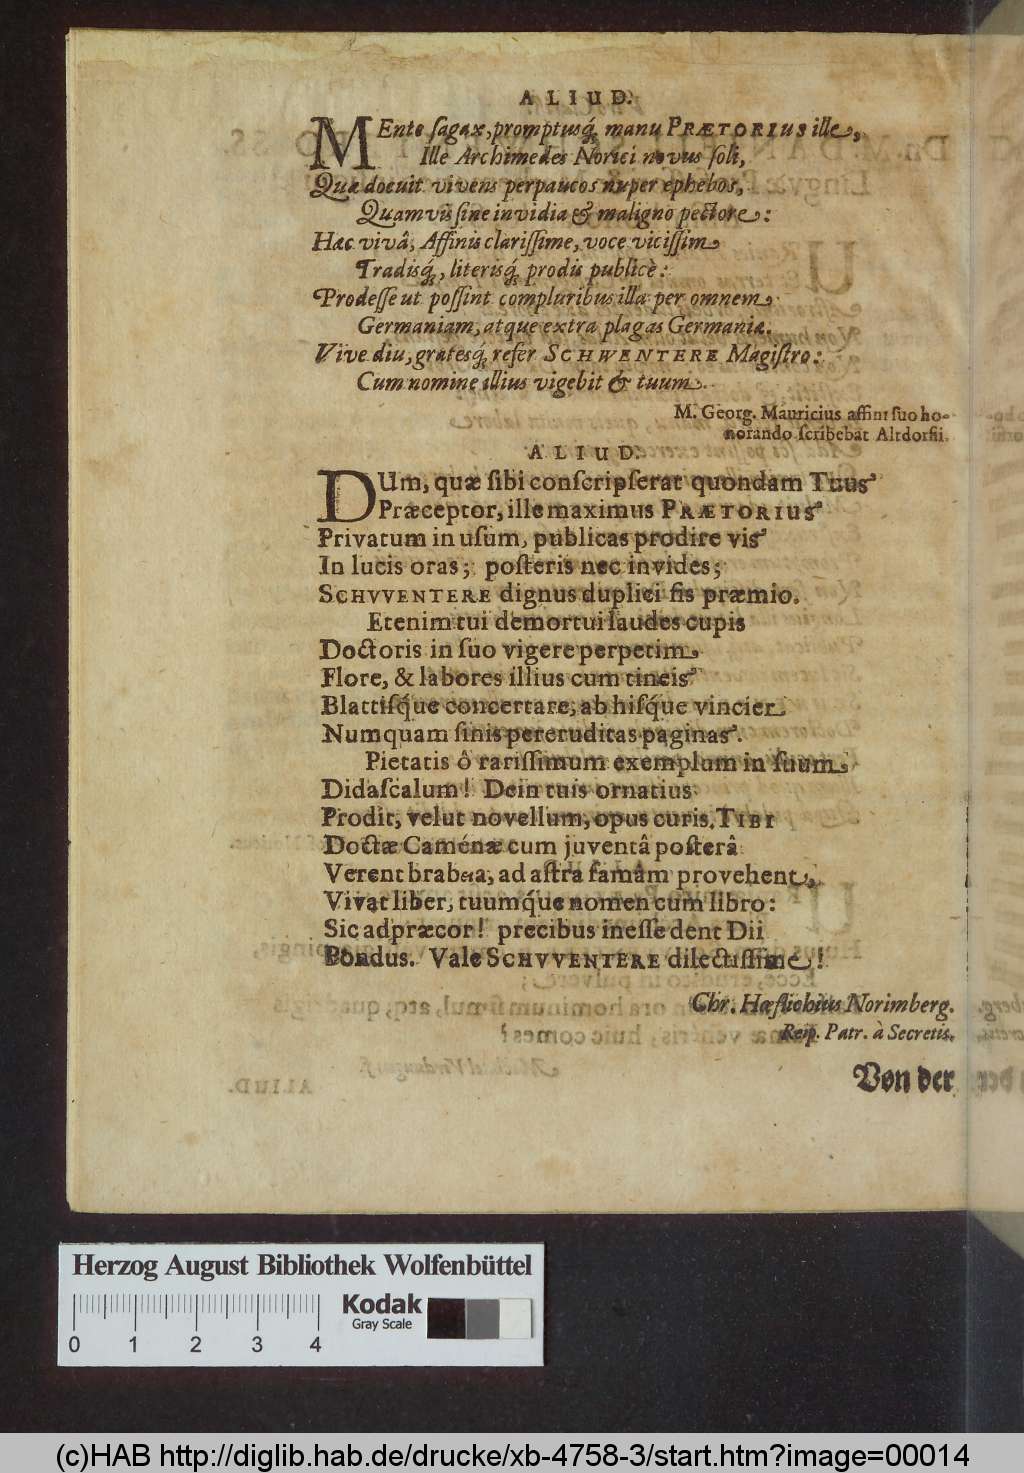 ALIUD.
MEnte ſagax, promptusq́; manu PRÆTORIUS ille,
Ille Archimedes Norici novus ſoli,
Quæ docuit vivens perpaucos nuper ephebos,
Quamvis ſine invidia & maligno pectore:
Hæc vivâ, Affinis clariſſime, voce viciſſim
Tradisq́;, literisq́; prodis publicè:
Prodeſſe ut poſſint compluribus illa per omnem
Germaniam, atque extra plagas Germaniæ.
Vive diu, gratesq́; refer SCHWENTERE Magiſtro:
Cum nomine illius vigebit & tuum.
M. Georg. Mauricius affini ſuo ho-
norando ſcribebat Altdorfii.
ALIUD.
DUm, quæ ſibi conſcripſerat quondam Tuus
Præceptor, ille maximus PRÆTORIUS
Privatum in uſum, publicas prodire vis
In lucis oras; poſteris nec invides;
SCHVVENTERE dignus duplici ſis præmio.
Etenim tui demortui laudes cupis
Doctoris in ſuo vigere perpetim
Flore, & labores illius cum tineis
Blattiſq́ue concertare, ab hiſq́ue vincier
Numquam ſinis pereruditas paginas.
Pietatis ô rariſſimum exemplum in ſuum
Didaſcalum! Dein tuis ornatius
Prodit, velut novellum, opus curis. TIBI
Doctæ Caménæ cum juventâ poſterâ
Verent brabæa, ad aſtra famam provehent,
Vivat liber, tuumq́ue nomen cum libro:
Sic adpræcor! precibus ineſſe dent Dii
Pondus. Vale SCHVVENTERE dilectiſſime!
Chr. Hœflichius Norimberg.
Reip. Patr. à Secretis.
Von der
Herzog August Bibliothek Wolfenbüttel
Kodak
Gray Scale
0 1 2 3 4
(c)HAB http://diglib.hab.de/drucke/xb-4758-3/start.htm?image=00014